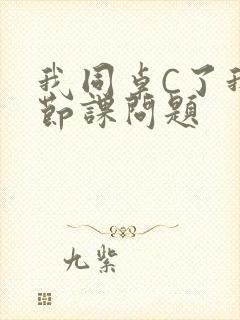 我同桌C了我
节课问题
九紫